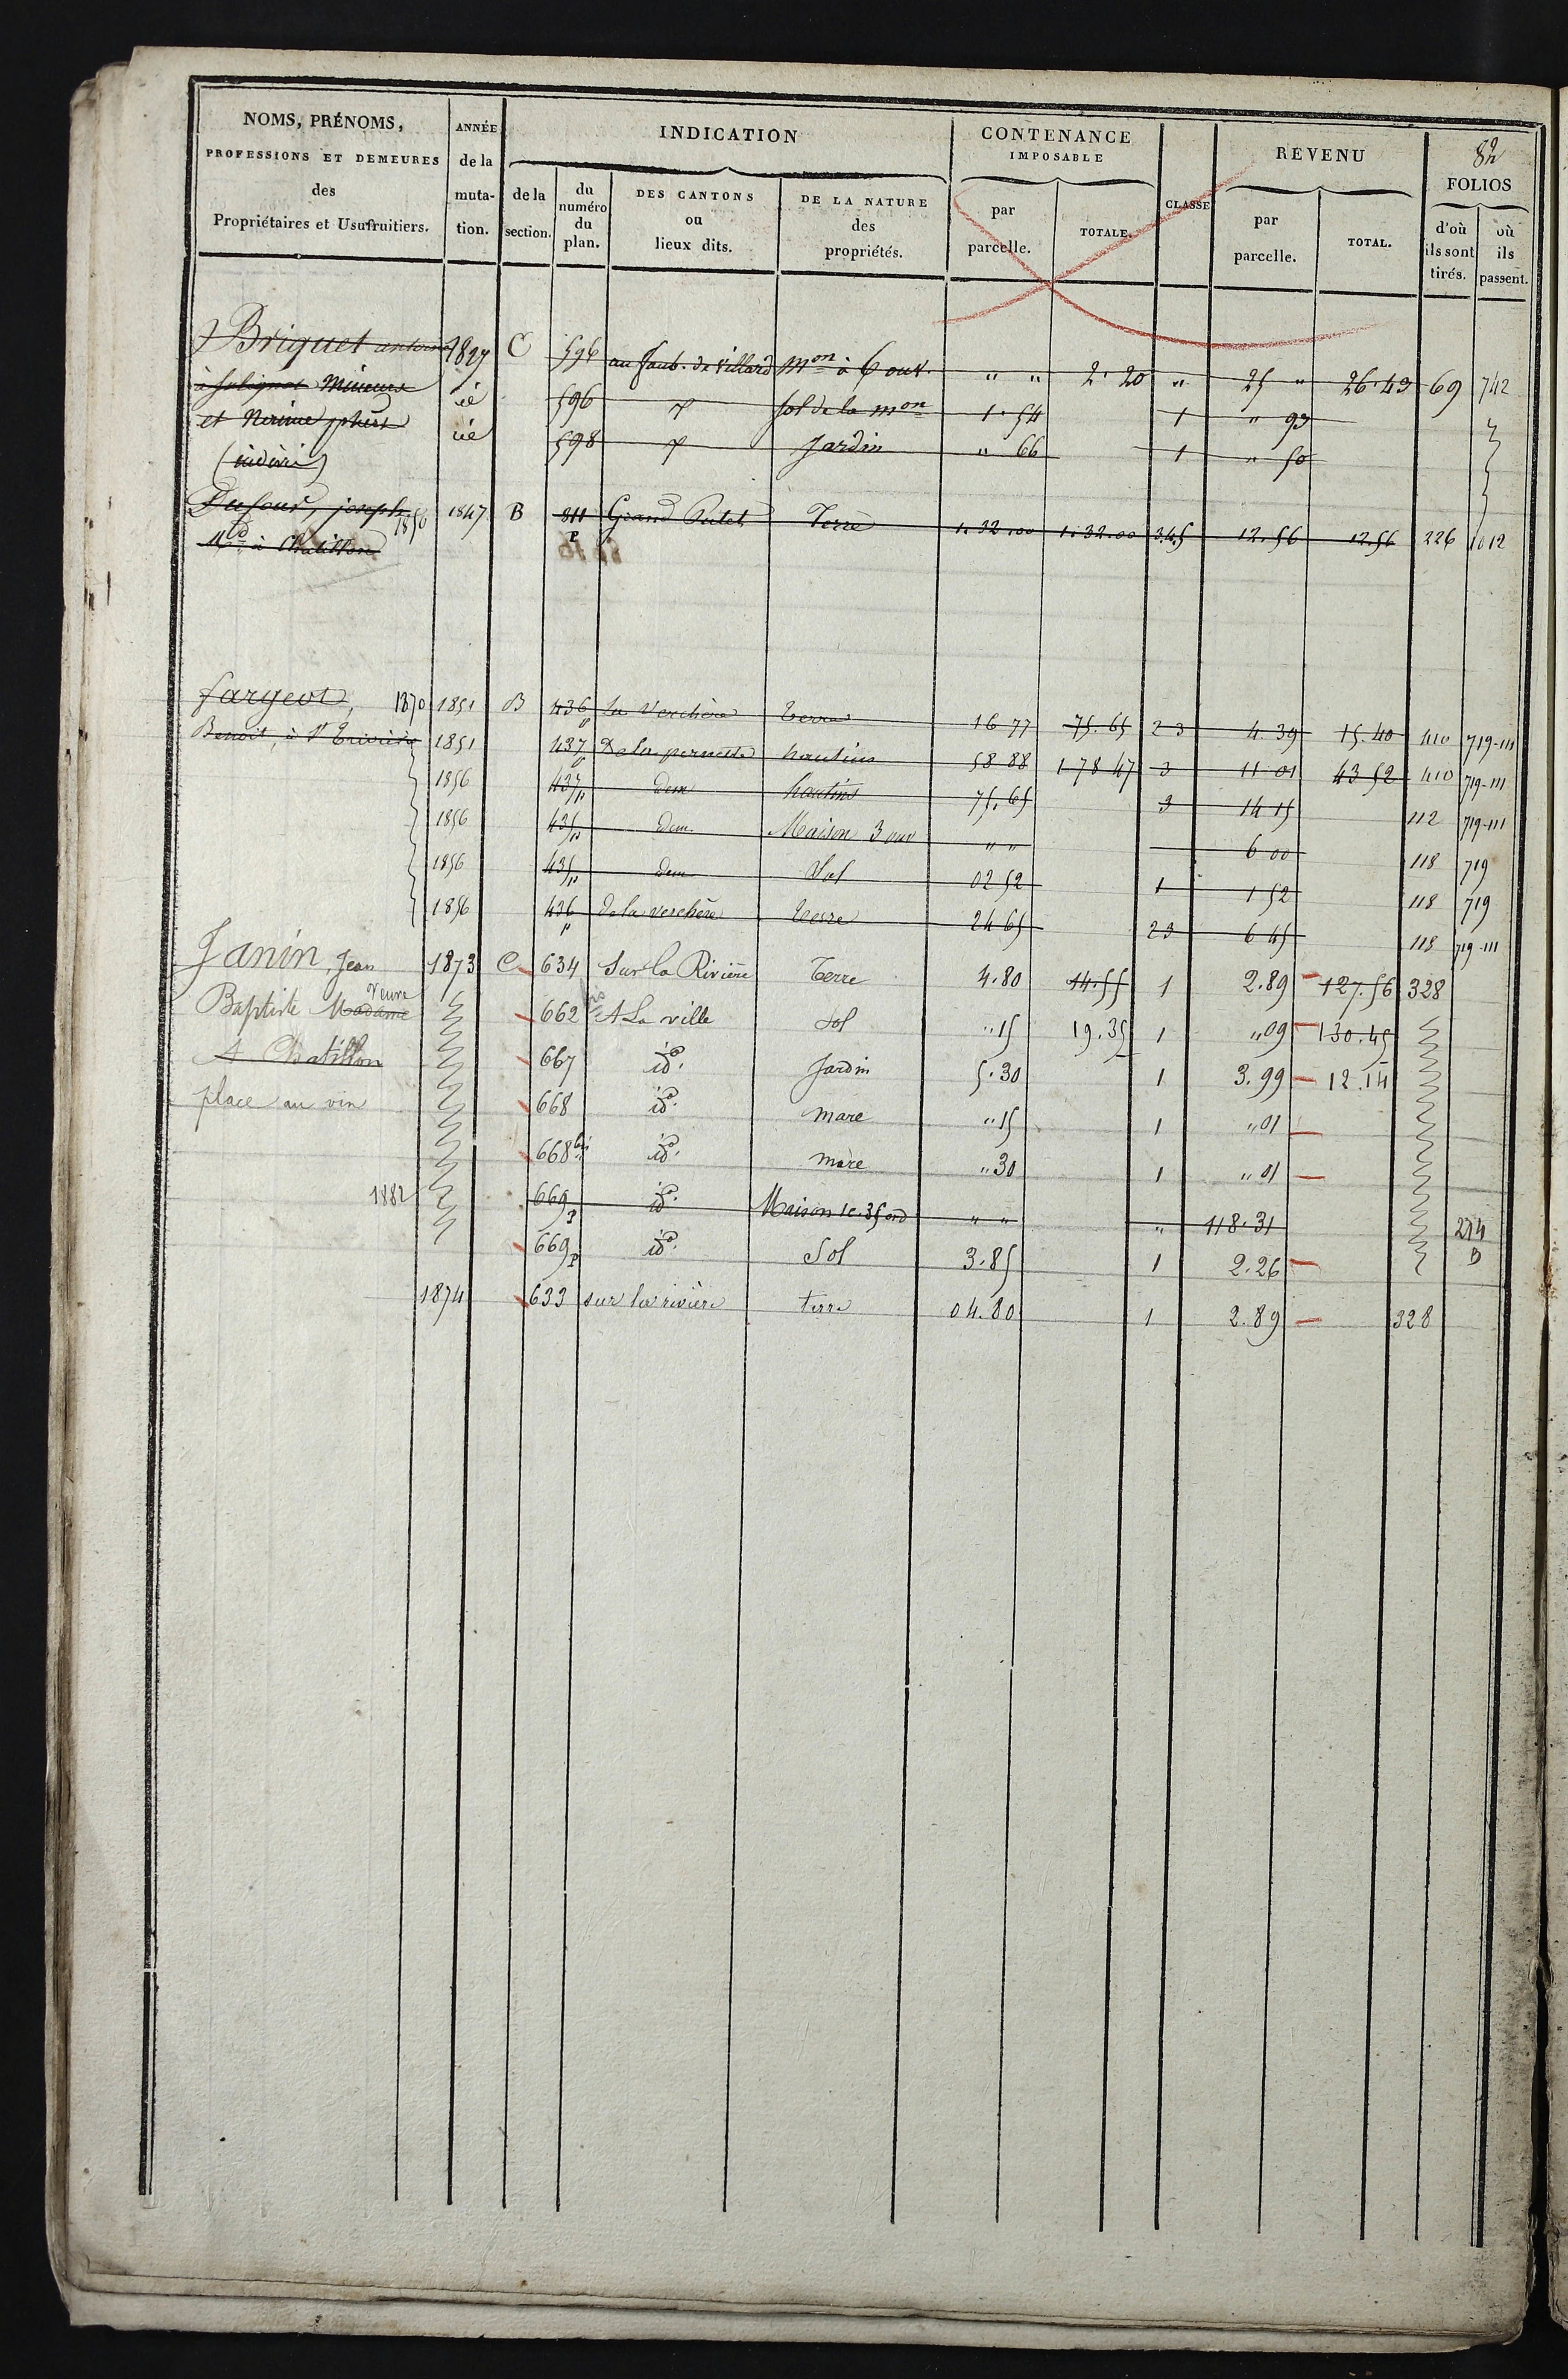 NOMS, PRÉNOMS, PROFESSIONS ET DEMEURES des Propriétaires et Usufruitiers.
ANNÉE de la mutation.
INDICATION
de la section.
du numéro du plan.
DES CANTONS ou lieux dits.
DE LA NATURE des propriétés.
CONTENANCE IMPOSABLE
par parcelle.
TOTALE.
CLASSE
REVENU
par parcelle.
TOTAL.
82
FOLIOS
d'où ils sont tirés.
où ils passent.
Briquet 1827 C 596 au faub. de villard Mon à 6 ouv. " " 2.20 " 25 " 26.43 69 742
à Mineurs id 596 sol de la Mon 1.54 1 " 93
et id 598 Jardin " 66 1 " 50
(indivis)
Dufour, joseph 1856 1847 B 811 P Grand Terre 1.32.00 1.32.00 3.4.5 12.56 12.56 226 1012
Md à Chatillon
fargeot, 1870 1851 B 436 p La Verchère terre 16 77 75.65 2 3 4.39 15.40 410 719-111
Benoit, à St Trivier 1851 437 p hautins 58 88 1 78 47 3 11 01 43 52 410 719-111
1856 437 p dem hautins 75.65 3 14 15 112 719-111
1856 435 p dem Maison 3 ouv " " 6 00 118 719
1856 435 p dem Sol 02 52 1 1 52 118 719
1856 436 p de la verchère terre 24 65 2 3 6 45 118 719-111
Janin, Jean 1873 C 634 Sur la Rivière Terre 4.80 14.55 1 2.89 127.56 328
Baptiste Madame veuve 662 bis A La ville Sol " 15 19.35 1 " 09 130.45
A Chatillon 667 id. Jardin 5.30 1 3.99 12.14
place au vin 668 id. mare " 15 1 " 01
668 bis id. mare " 30 1 " 01
1882 669 p id. Maison 1 c. 35 ord " " " 118.31 214 B
669 p id. Sol 3.85 1 2.26
1874 633 sur la rivière terre 04.80 1 2.89 328